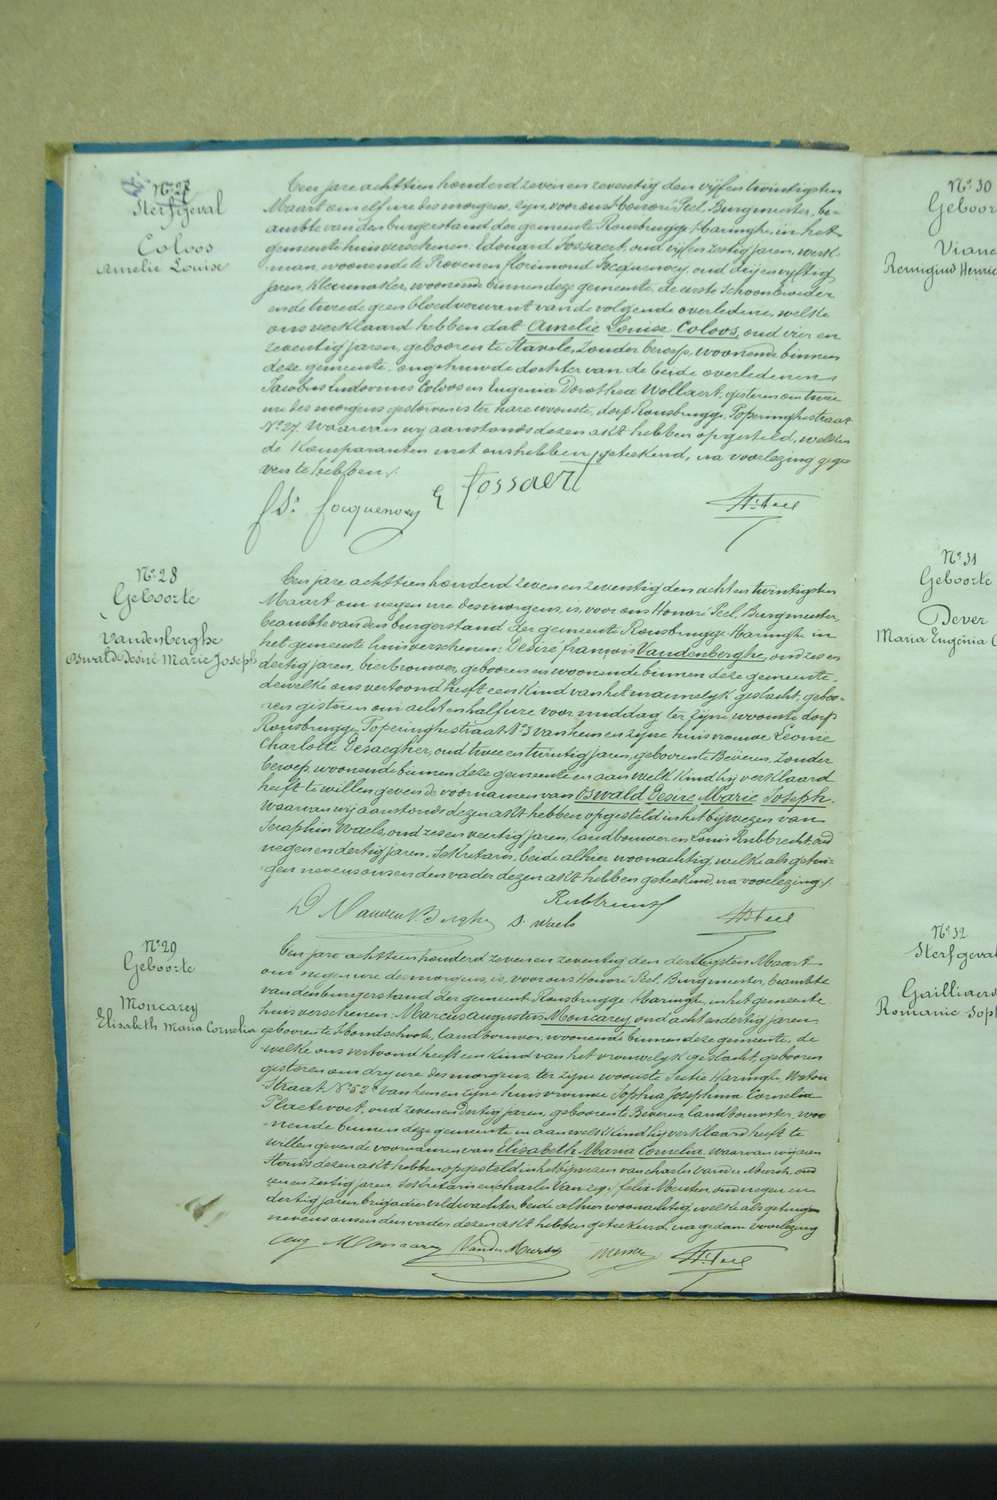 N° 27
Sterfgeval
Coloos
Amelie Louise
Een jare achttien honderd zeven en zeventig den vijf en twintigsten
Maart om elf ure des morgens, zijn voor ons Honoré Peel, Burgmeester, be-
ambte van den burgerstand der gemeente Rousbrugge Haringhe, in het
gemeente huis verschenen: Edouard Fossaert, oud vijf en zestig jaren, werk-
man, woonende te Proven en florimond Focquenoey oud drij en vijftig
jaren, kleermaker, woonende binnen deze gemeente, de eerste Schoonbroeder
en de tweede geen bloedverwant van de volgende overledene, welke
ons verklaard hebben dat Amelie Louise Coloos, oud vier en
zeventig jaren, geboren te Stavele, zonder beroep, woonende binnen
deze gemeente, ongehuwde dochter van de beide overledenen
Jacobus Ludovicus Coloos en Eugenia Dorothea Wollaert, gisteren om twee
ure des morgens gestorven is ter hare woonste, dorp Rousbrugge, Poperinghestraat
N° 27. Waarvan wij aanstonds dezen akt hebben opgesteld, welken
de komparanten met ons hebben geteekend, na voorlezing gege-
ven te hebben ./.
fl. focquenoey E fossaert H. Peel
N° 28
Geboorte
Vandenberghe
Oswald Desiré Marie Joseph
Een jare achttien honderd zeven en zeventig den acht en twintigsten
Maart om negen ure des morgens, is voor ons Honoré Peel, Burgmeester
beambte van den burgerstand der gemeente Rousbrugge Haringhe in
het gemeente huis verschenen: Desiré françois Vandenberghe, oud zes en
dertig jaren, bierbrouwer, geboren en woonende binnen deze gemeente,
dewelke ons vertoond heeft een kind van het mannelijk geslacht, gebo-
ren gisteren om acht en half ure voormiddag ter zijne woonste dorp
Rousbrugge, Poperinghestraat N° 3 van hem en zijne huisvrouwe Leonie
Charlotte Desaegher, oud twee en twintig jaren, geboren te Beveren, zonder
beroep, woonende binnen deze gemeente en aan welk kind hij verklaard
heeft te willen geven de voornamen van Oswald Desiré Marie Joseph.
Waarvan wij aanstonds dezen akt hebben opgesteld in het bijwezen van
Seraphin Waels, oud zes en veertig jaren, landbouwer en Louis Rubbrecht oud
negen en dertig jaren, Sekretaris, beide alhier woonachtig, welke als getui-
gen nevens ons en den vader dezen akt hebben geteekend, na voorlezing ./.
D Vanden Berghe S. Waels Rubbrecht H. Peel
N° 29
Geboorte
Moncarey
Elisabeth Maria Cornelia
Een jare achttien honderd zeven en zeventig den dertigsten Maart
om negen ure des morgens, is voor ons Honoré Peel, Burgmeester, beambte
van den burgerstand der gemeente Rousbrugge Haringhe, in het gemeente
huis verschenen: Marcus Augustus Moncarey, oud acht en dertig jaren,
geboren te Hondschoote, landbouwer, woonende binnen deze gemeente, de
welke ons vertoond heeft een kind van het vrouwelijk geslacht, geboren
gisteren om drij ure des morgens, ter zijne woonste Sectie Haringhe, Watou
Straat N° 52 van hem en zijne huisvrouwe Sophia Josephina Cornelia
Plaetevoet, oud zeven en dertig jaren, geboren te Beveren landbouwster, woo-
nende binnen deze gemeente en aan welk kind hij verklaard heeft te
willen geven de voornamen van Elisabeth Maria Cornelia. Waarvan wij aan
stonds dezen akt hebben opgesteld in het bijwezen van charles vander Meersch, oud
een en zestig jaren, en felix Meuten, oud negen en
dertig jaren, brigadier veldwachter, beide alhier woonachtig, welke als getuigen
nevens ons en den vader dezen akt hebben geteekend, na gedane voorlezing
Aug Moncarey Vander Meersch H. Peel
N° 30
Geboor
Viane
Remigius Henric
N° 31
Geboorte
Dever
Maria Eugenia C
N° 32
Sterfgeval
Gailliaerd
Romanie Soph